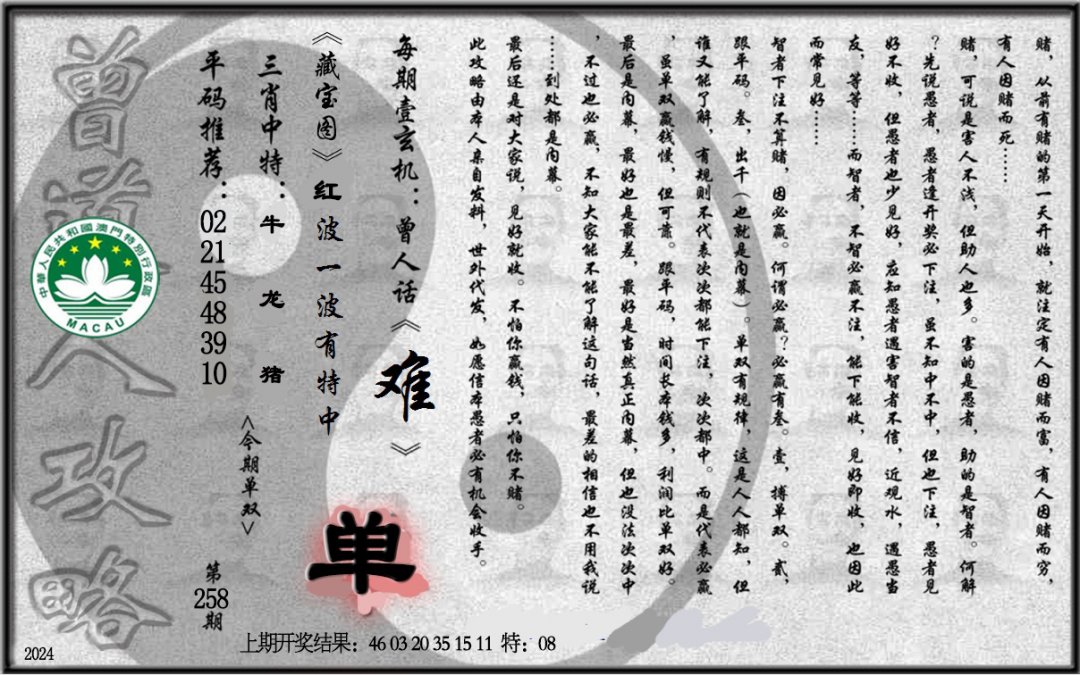 赌，从前有赌的第一天开始，就注定有人因赌而富，有人因赌而穷，
有人因赌而死……
赌，可说是害人不浅，但助人也多。害的是愚者，助的是智者。何解
？先说愚者，愚者逢开奖必下注，虽不知中不中，但也下注，愚者见
好不收，但愚者也少见好，应知愚者遇害智者不信，近观水，遇愚当
友，等等……而智者，不智必赢不注，能下能收，见好即收，也因此
而常见好……
智者下注不算赌，因必赢。何谓必赢？必赢有叁。壹，搏单双。贰，
跟平码。叁，出千（也就是内幕）。单双有规律，这是人人都知，但
谁又能了解，有规则不代表次次都能下注，次次都中。而是代表必赢
，虽单双赢钱慢，但可靠。跟平码，时间长本钱多，利润比单双好。
最后是内幕，最好也是最差，最好是当然真正内幕，但也没法次次中
，不过也必赢，不知大家能不能了解这句话，最差的相信也不用我说
……到处都是内幕。
最后还是对大家说，见好就收。不怕你赢钱，只怕你不赌。
此攻略由本人亲自发料，世外代发，如愿信本愚者必有机会收手。
每期壹玄机：曾人话《难》
《藏宝图》红波一波有特中
三肖中特：牛 龙 猪
平码推荐：02 21 45 48 39 10
<今期单双>
单
第258期
曾道人攻略
中華人民共和國澳門特別行政區
MACAU
上期开奖结果：46 03 20 35 15 11 特：08
2024